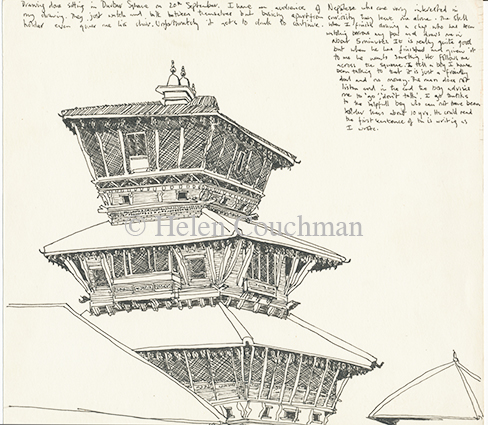 Drawing done sitting in Durbar Square on 20th September. I have an audience of Nepalese who are very interested in
my drawing. They just watch and talk between themselves but besides apart from curiosity they leave me alone. The stall
holder even gives me his chair. Unfortunately it gets to dark to continue. When I finish drawing a chap who has been
watching pen and draws me in
about 5 minutes. It is really quite good
but when he has finished and given it
to me he wants something. He follows me
across the square. I tell a boy I have
been talking to that it is just a friendly
and no money. The man does not
listen and in the end the boy advises
me to "go, don't talk", I get
to the helpful boy who can not have been
older than about 10 yrs. He could read
the first sentence of this writing as
I wrote.
© Helen Couchman